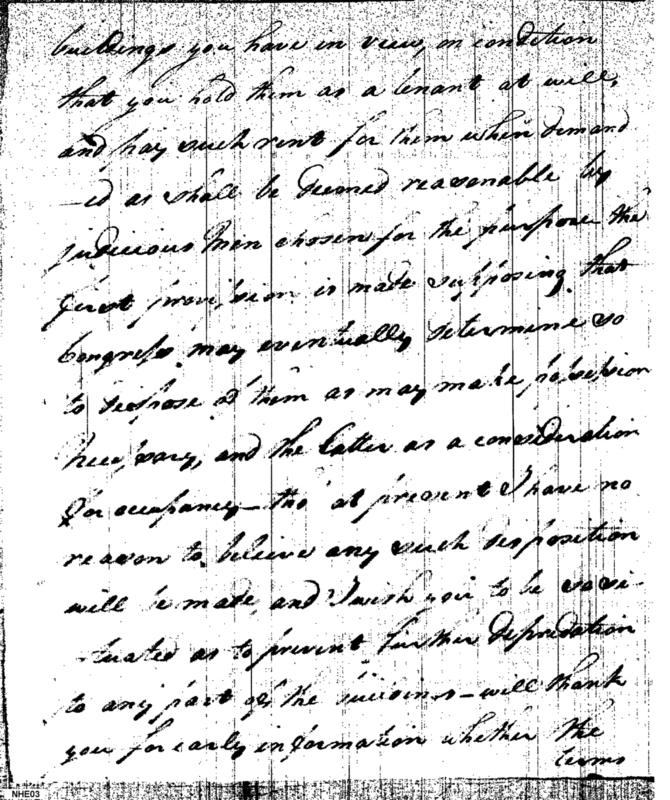 buildings you have in view, on condition
that you hold them as a tenant at will,
and pay such rent for them when demand
-ed as shall be deemed reasonable by
judicious Men chosen for the purpose the
first provision is made supposing that
Congress may eventually determine so
to despose of them as may make possession
necessary, and the latter as a consideration
for occupancy - tho' at present I have no
reason to believe any such desposition
will be made and I wish you to be so si-
-tuated as to prevent further depredation
to any part of the - will thank
you for early information whether the
terms
NHE03